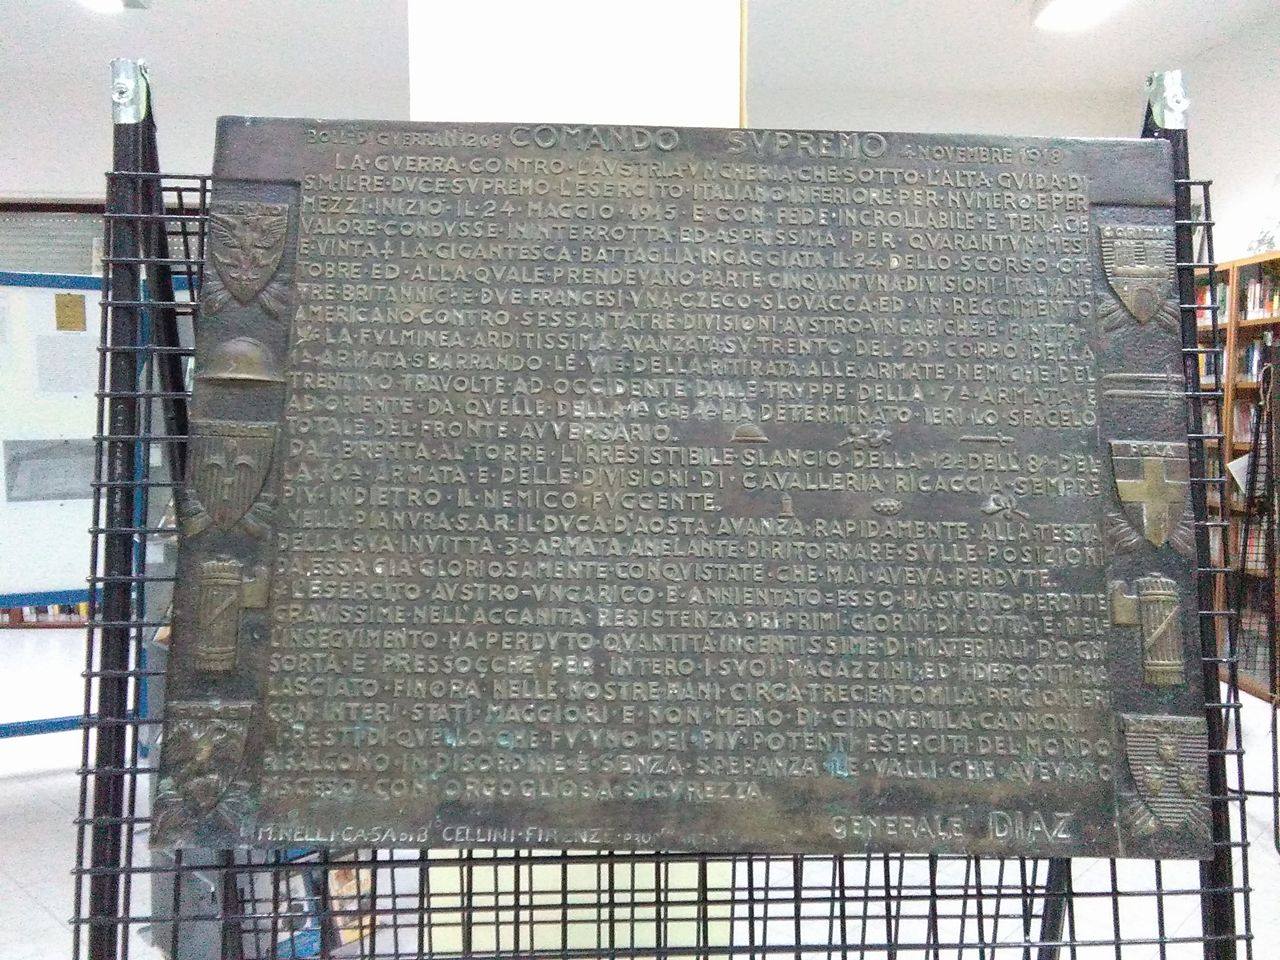 BOLL·DI GVERRA N.1268 COMANDO SVPREMO 4 NOVEMBRE 1918
LA·GVERRA·CONTRO·L'AVSTRIA·VNGHERIA·CHE·SOTTO·L'ALTA·GVIDA·DI
S.M.IL·RE·DVCE·SVPREMO·L'ESERCITO·ITALIANO·INFERIORE·PER·NVMERO·E·PER
MEZZI·INIZIÒ·IL·24·MAGGIO·1915·E·CON·FEDE·INCROLLABILE·E·TENACE
VALORE·CONDVSSE·ININTERROTTA·ED·ASPRISSIMA·PER·QVARANTVN·MESI
È·VINTA·LA·GIGANTESCA·BATTAGLIA·INGAGGIATA·IL·24·DELLO·SCORSO·OT·
TOBRE·ED·ALLA·QVALE·PRENDEVANO·PARTE·CINQVANTVNA·DIVISIONI·ITALIANE
TRE·BRITANNICHE·DVE·FRANCESI·VNA·CZECO·SLOVACCA·ED·VN·REGGIMENTO
AMERICANO·CONTRO·SESSANTATRE·DIVISIONI·AVSTRO·VNGARICHE·È·FINITA·
LA·FVLMINEA·ARDITISSIMA·AVANZATA·SV·TRENTO·DEL·29°·CORPO·DELLA
1ª·ARMATA·SBARRANDO·LE·VIE·DELLA·RITIRATA·ALLE·ARMATE·NEMICHE·DEL
TRENTINO·TRAVOLTE·AD·OCCIDENTE·DALLE·TRVPPE·DELLA·7ª·ARMATA·E
AD·ORIENTE·DA·QVELLE·DELLA·1ª 6ª·E·4ª·HA·DETERMINATO·IERI·LO·SFACELO
TOTALE·DEL·FRONTE·AVVERSARIO·
DAL·BRENTA·AL·TORRE·L'IRRESISTIBILE·SLANCIO·DELLA·12ª·DELL'8ª·DEL
LA·10ª·ARMATA·E·DELLE·DIVISIONI·DI·CAVALLERIA·RICACCIA·SEMPRE
PIV·INDIETRO·IL·NEMICO·FVGGENTE·
NELLA·PIANVRA·S.A.R.IL·DVCA·D'AOSTA·AVANZA·RAPIDAMENTE·ALLA·TESTA
DELLA·SVA·INVITTA·3ª·ARMATA·ANELANTE·DI·RITORNARE·SVLLE·POSIZIONI
DA·ESSA·GIÀ·GLORIOSAMENTE·CONQVISTATE·CHE·MAI·AVEVA·PERDVTE·
L'ESERCITO·AVSTRO-VNGARICO·È·ANNIENTATO·ESSO·HA·SVBITO·PERDITE
GRAVISSIME·NELL'ACCANITA·RESISTENZA·DEI·PRIMI·GIORNI·DI·LOTTA·E·NEL
L'INSEGVIMENTO·HA·PERDVTO·QVANTITÀ·INGENTISSIME·DI·MATERIALI·D'OGNI
SORTA·E·PRESSOCCHE·PER·INTERO·I·SVOI·MAGAZZINI·ED·I·DEPOSITI·HA
LASCIATO·FINORA·NELLE·NOSTRE·MANI·CIRCA·TRECENTOMILA·PRIGIONIERI
CON·INTERI·STATI·MAGGIORI·E·NON·MENO·DI·CINQVEMILA·CANNONI·
I·RESTI·DI·QVELLO·CHE·FV·VNO·DEI·PIV·POTENTI·ESERCITI·DEL·MONDO
RISALGONO·IN·DISORDINE·E·SENZA·SPERANZA·LE·VALLI·CHE·AVEVANO
DISCESO·CON·ORGOGLIOSA·SICVREZZA·
GENERALE DIAZ
M.NELLI·CASA·DI·B CELLINI·FIRENZE
GORIZIA
ROMA